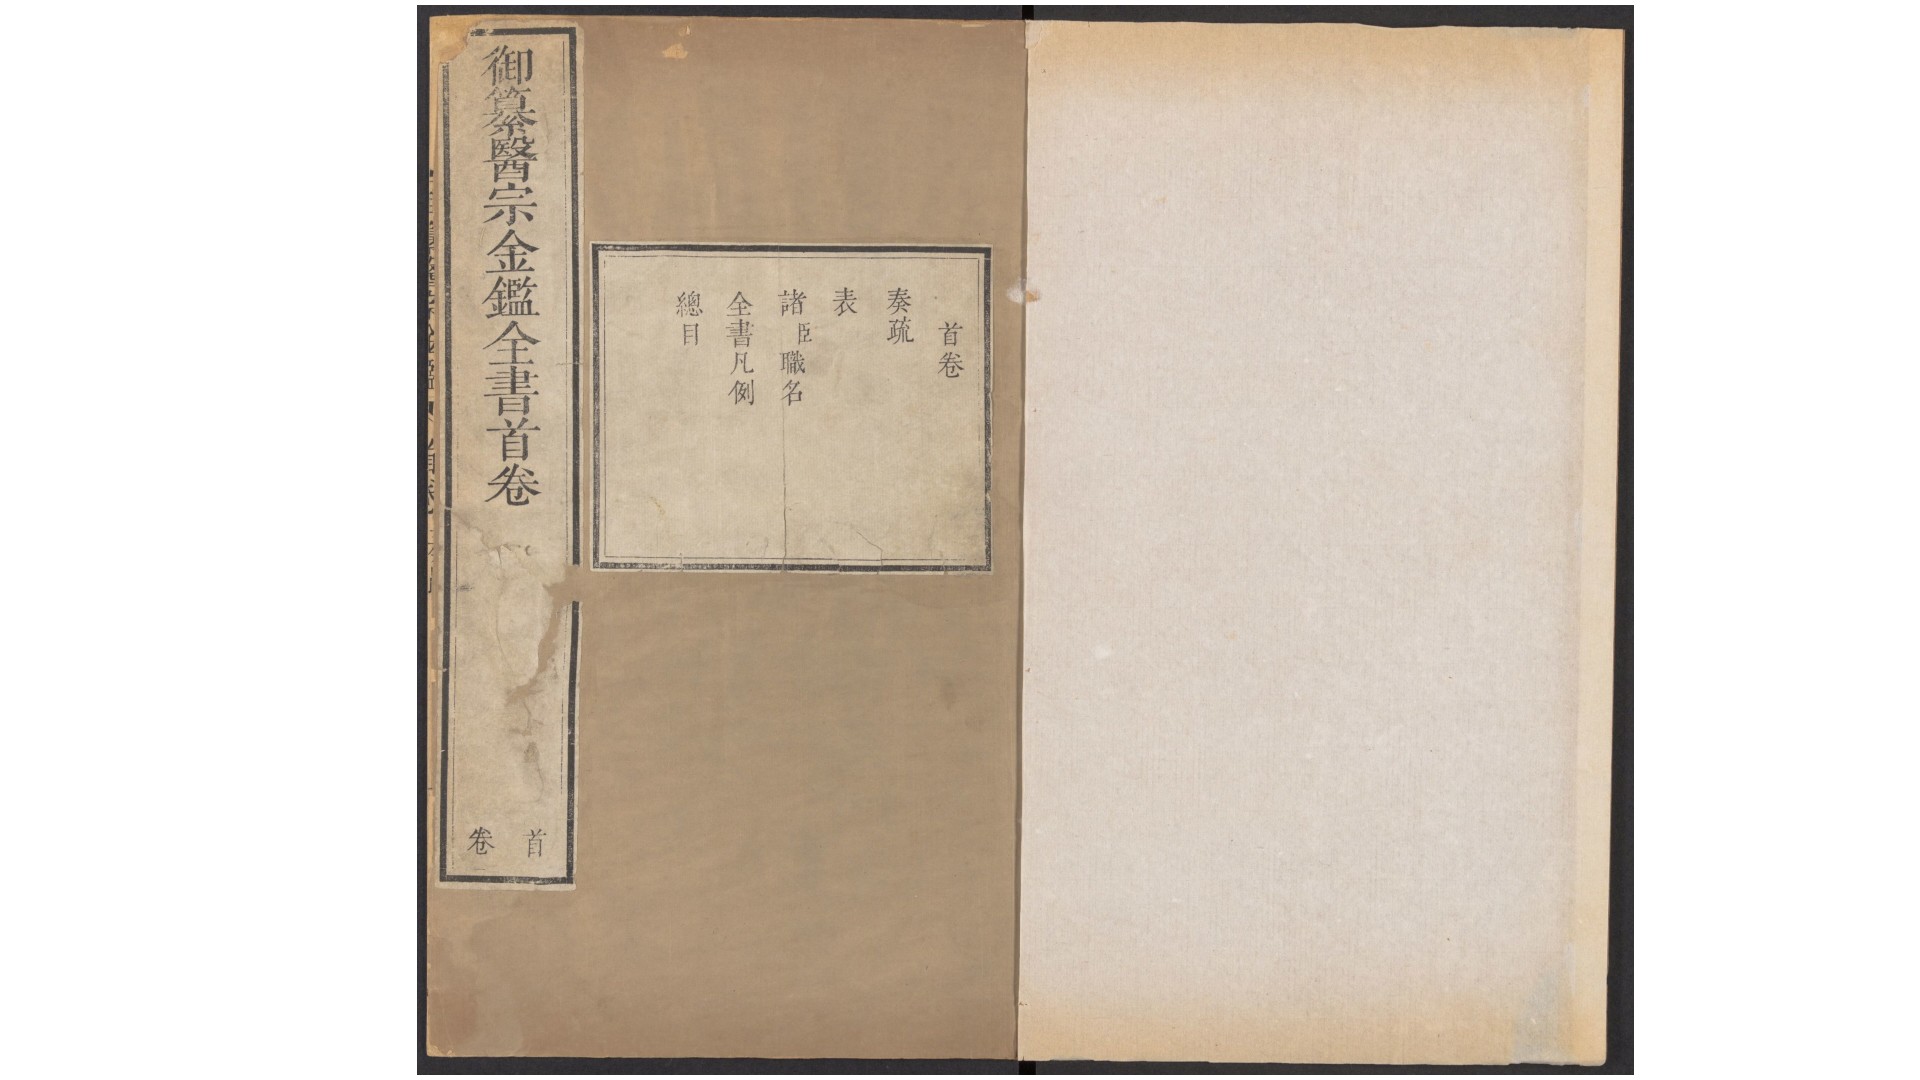 御纂醫宗金鑑全書首卷
首
卷
首卷
奏疏
表
諸臣職名
全書凡例
總目